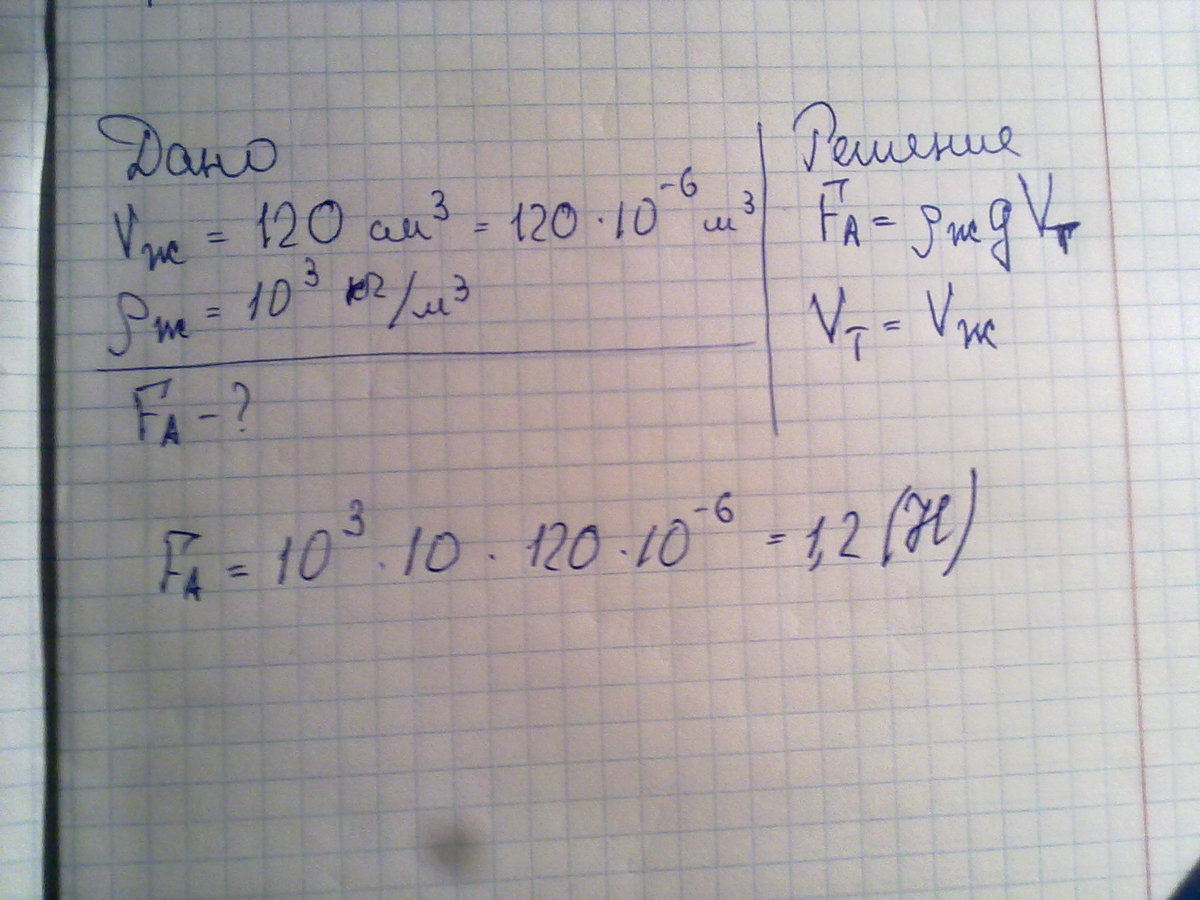 Дано
Vж = 120 см³ = 120 · 10⁻⁶ м³
ρж = 10³ кг/м³
FА – ?
Решение
FА = ρж g Vт
Vт = Vж
FА = 10³ · 10 · 120 · 10⁻⁶ = 1,2 (Н)